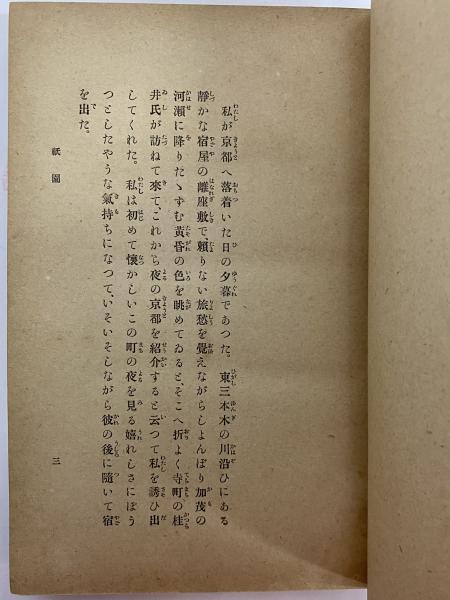 私が京都へ落着いた日の夕暮であつた。東三本木の川沿ひにある
靜かな宿屋の離座敷で、賴りない旅愁を覺えながらしよんぼり加茂の
河瀨に降りたゝずむ黃昏の色を眺めてゐると、そこへ折よく寺町の桂
井氏が訪ねて來て、これから夜の京都を紹介すると云つて私を誘ひ出
してくれた。私は初めて懷かしいこの町の夜を見る嬉れしさにぼう
つとしたやうな氣持ちになつて、いそいそしながら彼の後に隨いて宿
を出た。
祇園
三